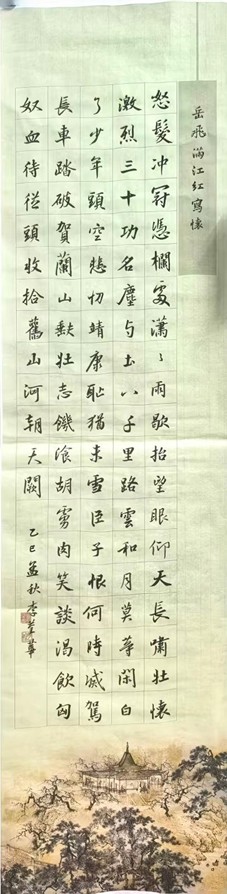 岳飛滿江紅寫懷
怒髮冲冠憑欄處瀟々雨歇抬望眼仰天長嘯壯懷
激烈三十功名塵与土八千里路雲和月莫等閑白
了少年頭空悲切靖康恥猶未雪臣子恨何時滅駕
長車踏破賀蘭山缺壯志饑飡胡虜肉笑談渴飲匈
奴血待從頭收拾舊山河朝天闕
乙巳孟秋李華